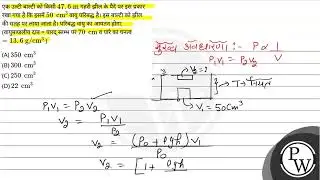 एक उल्टी बाल्टी को किसी 47.6 m गहरी झील के पेंदे पर इस प्रकार
रखा गया है कि इसमें 50 cm³ वायु परिबद्ध है। इस बाल्टी को झील
की सतह पर लाया जाता है। परिबद्ध वायु का आयतन होगा:
(वायुमण्डलीय दाब = पारद स्तम्भ पर 70 cm व पारे का घनत्व
= 13.6 g/cm³)
(A) 350 cm³
(B) 300 cm³
(C) 250 cm³
(D) 22 cm³
मुख्य अवधारणा :- P ∝ 1/V
P₁V₁ = P₂V₂
V₂ = ?
T → नियत
V₁ = 50 cm³
P₁V₁ = P₂V₂
V₂ = P₁V₁/P₂
V₂ = (P₀ + ρgh) V₁/P₀
V₂ = [1 + ρgh
PW